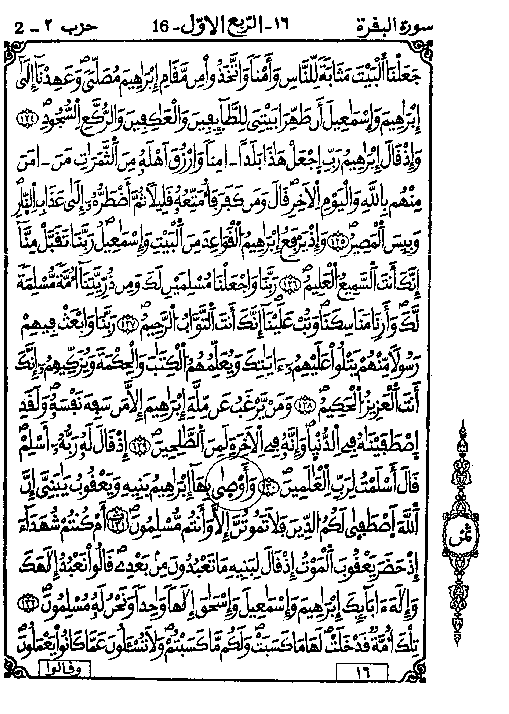 سورة البقرة
١٦ - الربع الاول - 16
حزب ٢ - 2
جَعَلْنَا اَلْبَيْتَ مَثَابَةً لِّلنَّاسِ وَأَمْناً وَاتَّخَذُواْ مِن مَّقَامِ إِبْرَاهِيمَ مُصَلّىً وَعَهِدْنَا إِلَىٰ
إِبْرَاهِيمَ وَإِسْمَاعِيلَ أَن طَهِّرَا بَيْتِيَ لِلطَّآئِفِينَ وَالْعَاكِفِينَ وَالرُّكَّعِ اِلسُّجُودِ ١٢٤
وَإِذْ قَالَ إِبْرَاهِيمُ رَبِّ اِجْعَلْ هَاذَا بَلَداً ـ امِناً وَارْزُقْ أَهْلَهُ مِنَ اَلثَّمَرَاتِ مَنَ ـ امَنَ
مِنْهُم بِاللَّهِ وَالْيَوْمِ اِلَاخِرِ قَالَ وَمَن كَفَرَ فَأُمَتِّعُهُ قَلِيلاً ثُمَّ أَضْطَرُّهُ إِلَىٰ عَذَابِ اِلنّارِ
وَبِيسَ اَلْمَصِيرُ ١٢٥ وَإِذْ يَرْفَعُ إِبْرَاهِيمُ اُلْقَوَاعِدَ مِنَ اَلْبَيْتِ وَإِسْمَاعِيلُ رَبَّنَا تَقَبَّلْ مِنَّا
إِنَّكَ أَنتَ اَلسَّمِيعُ الْعَلِيمُ ١٢٦ رَبَّنَا وَاجْعَلْنَا مُسْلِمَيْنِ لَكَ وَمِن ذُرِّيَّتِنَا أُمَّةً مُّسْلِمَةً
لَّكَ وَأَرِنَا مَنَاسِكَنَا وَتُبْ عَلَيْنَا إِنَّكَ أَنتَ اَلتَّوَّابُ الرَّحِيمُ ١٢٧ رَبَّنَا وَابْعَثْ فِيهِمْ
رَسُولاً مِّنْهُمْ يَتْلُواْ عَلَيْهِمُ ءَايَاتِكَ وَيُعَلِّمُهُمُ اُلْكِتَابَ وَالْحِكْمَةَ وَيُزَكِّيهِمُ إِنَّكَ
أَنتَ اَلْعَزِيزُ الْحَكِيمُ ١٢٨ وَمَنْ يَّرْغَبُ عَن مِّلَّةِ إِبْرَاهِيمَ إِلَّا مَن سَفِهَ نَفْسَهُ وَلَقَدِ
اِصْطَفَيْنَاهُ فِي الدُّنْيَا وَإِنَّهُ فِي اِلَاخِرَةِ لَمِنَ اَلصَّالِحِينَ ١٢٩ إِذْ قَالَ لَهُ رَبُّهُ أَسْلِمْ
قَالَ أَسْلَمْتُ لِرَبِّ اِلْعَالَمِينَ ١٣٠ وَأَوْصَىٰ بِهَا إِبْرَاهِيمُ بَنِيهِ وَيَعْقُوبُ يَابَنِيَّ إِنَّ
اَللَّهَ اَصْطَفَىٰ لَكُمُ اُلدِّينَ فَلَا تَمُوتُنَّ إِلَّا وَأَنتُم مُّسْلِمُونَ ١٣١ أَمْ كُنتُمْ شُهَدَآءَ
إِذْ حَضَرَ يَعْقُوبَ اَلْمَوْتُ إِذْ قَالَ لِبَنِيهِ مَا تَعْبُدُونَ مِنۢ بَعْدِي قَالُواْ نَعْبُدُ إِلَاهَكَ
وَإِلَاهَ ءَابَآئِكَ إِبْرَاهِيمَ وَإِسْمَاعِيلَ وَإِسْحَاقَ إِلَاهاً وَاحِداً وَنَحْنُ لَهُ مُسْلِمُونَ ١٣٢
تِلْكَ أُمَّةٌ قَدْ خَلَتْ لَهَا مَا كَسَبَتْ وَلَكُم مَّا كَسَبْتُمْ وَلَا تُسْـَٔلُونَ عَمَّا كَانُواْ يَعْمَلُونَ
ثمن
١٦
وقالوا